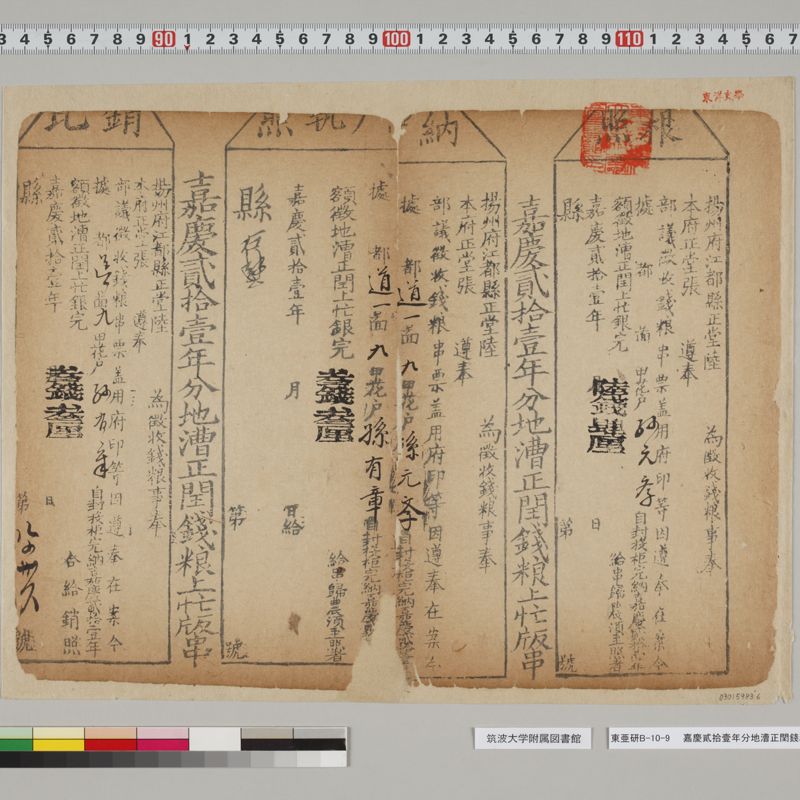 3 4 5 6 7 8 9 90 1 2 3 4 5 6 7 8 9 100 1 2 3 4 5 6 7 8 9 110 1 2 3 4 5 6 7
根照
揚州府江都縣正堂陸 為徵收錢糧事奉
本府正堂張 遵奉
部議徵收錢粮串票蓋用府印等因遵奉在案今
據 都 啚 甲花戶 孫元孝 自封投柜完納嘉慶貳拾壹年
額徵地漕正閏上忙銀完 陸錢 厘 給串歸農須至照者
嘉慶貳拾壹年 日
縣 第 號
嘉慶貳拾壹年分地漕正閏錢粮上忙版串
納
揚州府江都縣正堂陸 為徵收錢糧事奉
本府正堂張 遵奉
部議徵收錢粮串票蓋用府印等因遵奉在案今
據 都道一啚九甲花戶孫元孝自封投柜完納嘉慶
執照
據 都道一啚九甲花戶孫有章自封投柜完納嘉慶
額徵地漕正閏上忙銀完 叁錢叁厘 給串歸農須至照者
嘉慶貳拾壹年 月 日給
縣 第 號
嘉慶貳拾壹年分地漕正閏錢粮上忙版串
銷比
揚州府江都縣正堂陸 為徵收錢粮事奉
本府正堂張 遵奉
部議徵收錢粮串票蓋用府印等因遵奉在案今
據 都道一啚九甲花戶孫有章自封投柜完納嘉慶貳拾壹年
額徵地漕正閏上忙銀完 叁錢叁厘 合給銷照
嘉慶貳拾壹年 日
縣 第 號
03015983 6
筑波大学附属図書館
東亜研B-10-9 嘉慶貳拾壹年分地漕正閏錢